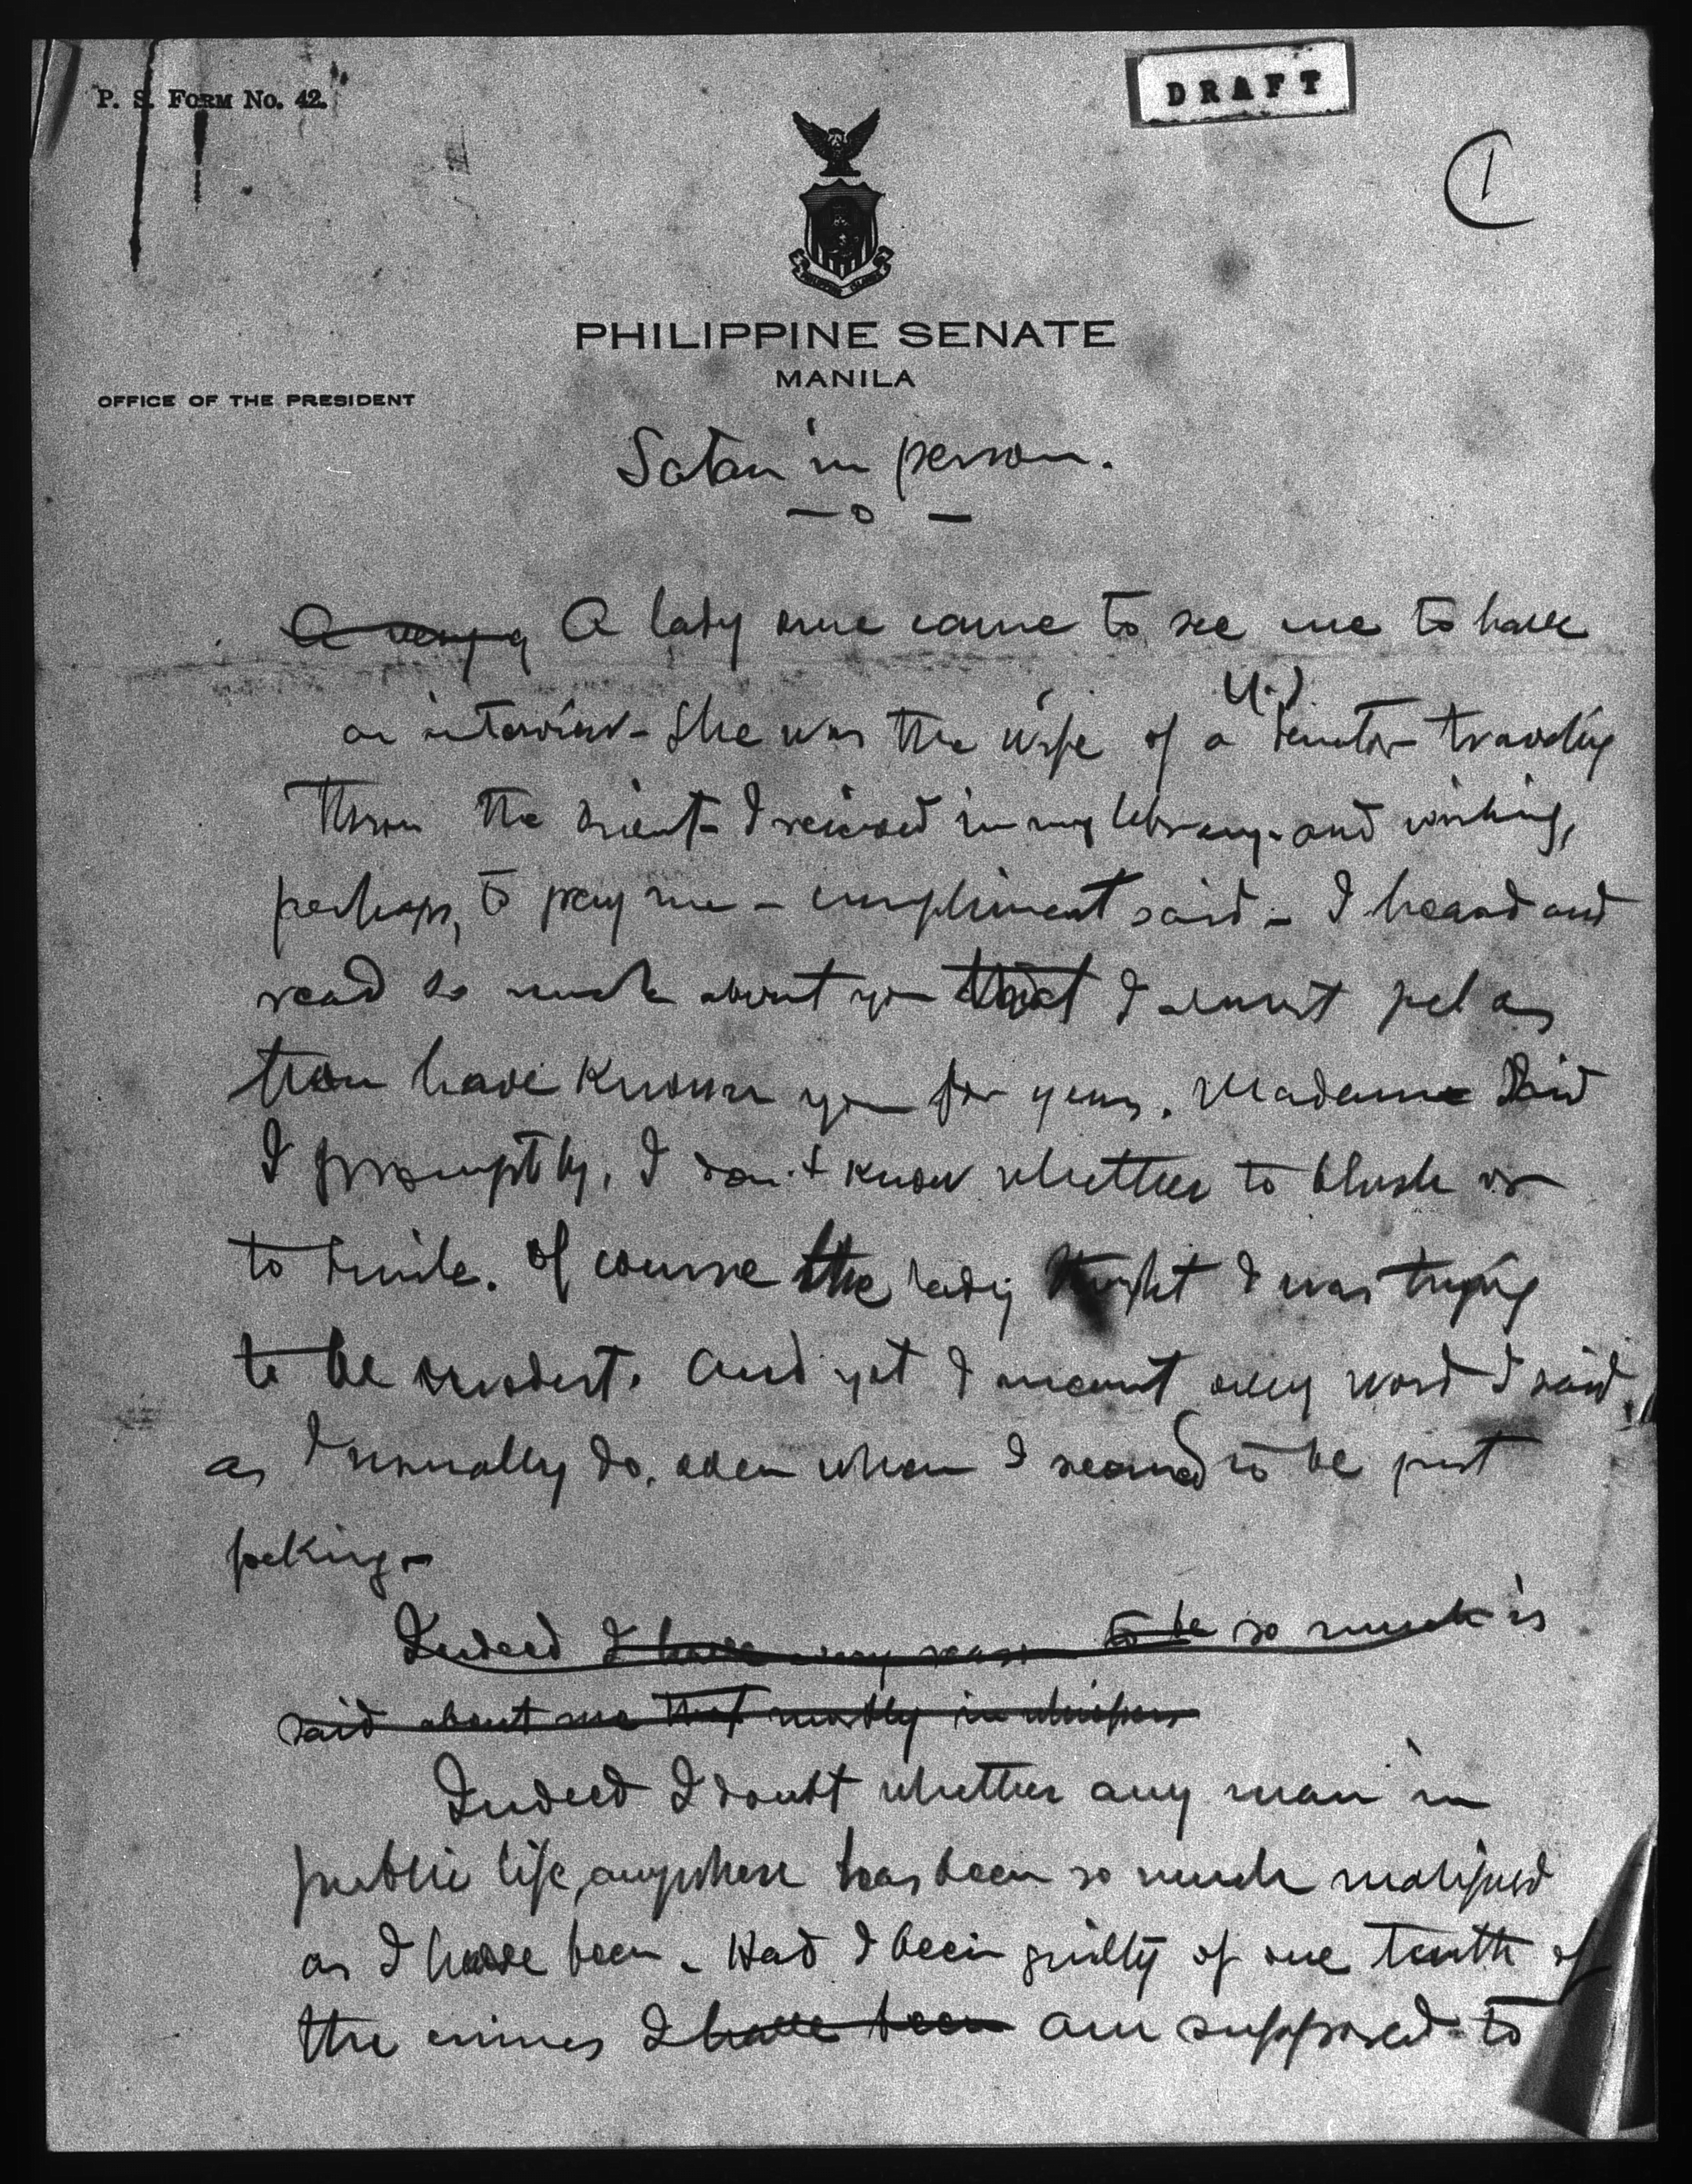 P. S. FORM NO. 42.
DRAFT
1
PHILIPPINE SENATE
MANILA
OFFICE OF THE PRESIDENT
Satan in person.
— o —
A very A lady once came to see me to have
an interview - She was the wife of a U.S. Senator traveling
throu the Orient - I received in my library - and wishing,
perhaps, to pay me a compliment said - I heard and
read so much about you that I almost feel as
have known you for years. Madame said
I promptly, I don't know whether to blush or
to smile. Of course the lady thought I was trying
to be modest. And yet I meant every word I said,
as I usually do, even when I seemed to be just
joking -
Indeed I have very reason to be so much is
said about me that mostly in whispers
Indeed I doubt whether any man in
public life, anywhere has been so much maligned
as I have been - Had I been guilty of one tenth of
the crimes I have been am supposed to